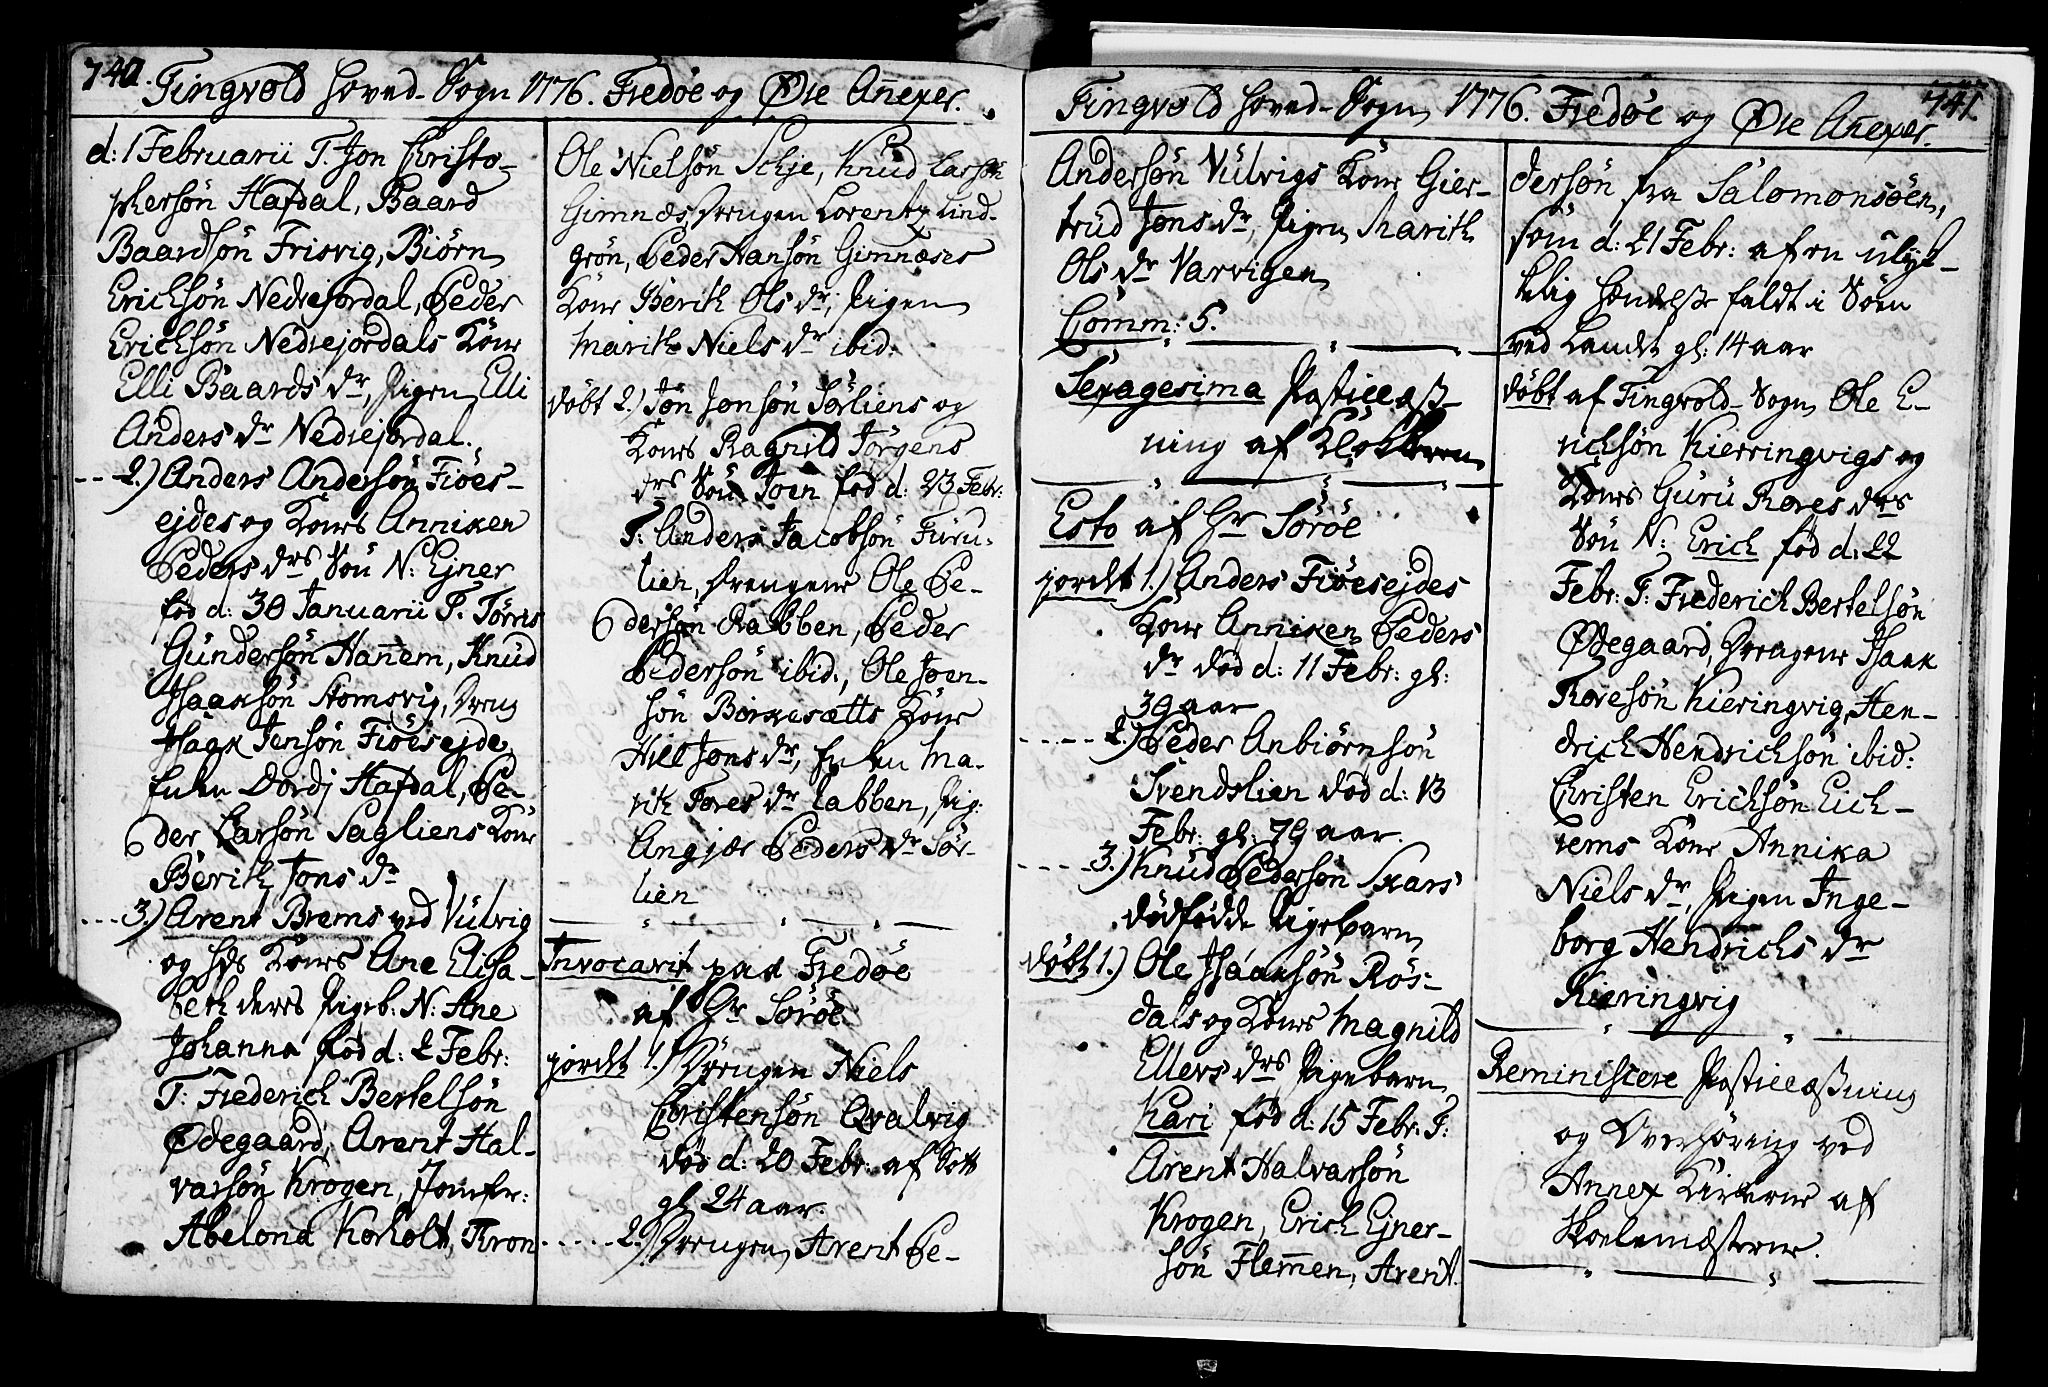 740. Tingvold Hoved-Sogn 1776. Fredöe og Øre Añexer.
d: 1 Februarii T. Jon Christo-
phersön Hafdal, Baard
Baardsön Frisvig, Biörn
Ericksön Nedrejordal, Peder
Ericksön Nedrejordals Kone
Elli Baards dr, Pigen Elli
Anders dr Nedrejordal.
2.) Anders Andersön Fiöes-
ejdes og Kones Anniken
Peders drs Sön N: Ejner
fod d: 30 Januarii T. Törris
Gündersön Hañem, Knüd
Isaaksön Stomsvig, Dreng
Isaak Jensön Fiöesejde,
Enken Dordj Hafdal, Pe-
der Larsön Sagliens Kone
Berith Jons dr
3.) Arent Brems ved Vülvig
og Hds Kones Ane Elisa-
beth deres Pigeb: N: Ane
Johanna fod d: 2 Febr:
T: Frederich Bertelsön
Ødegaard, Arent Hal-
varsön Krogen, Jomfr:
Abelona Korholt, Kron
Ole Nielsön Schje, Knüd Larsön
Gimnæs, Drengen Lorentz Lind-
grön, Peder Hansön Gimnæses
Kone Berith Ols dr, Pigen
Marith Niels dr ibid:
döbt 2.) Jon Jonsön Sörliens og
Kones Ragnild Jörgens
drs Sön Joen fod d: 23 Febr:
T. Anders Jacobsön Füru-
lien, Drengene Ole Pe-
dersön Rabben, Peder
Pedersön ibid:, Ole Joen-
sön Borkesætts Kone
Hill Jons dr, Enken Ma-
rith Tores dr Labben, Pig:
Angjær Peders dr Sör-
lien
Invocavit paa Fredöe
af Hr Söröe
jordet 1.) Drengen Niels
Christensön Qvalvig
död d: 20 Febr: af Sott
gl: 24 aar.
2.) Drengen Arent Pe-
Tingvold Hoved-Sogn 1776. Fredöe og Øre Añexer. 741.
Andersön Vülvigs Kone Gier-
trüd Jons dr, Pigen Marith
Ols dr Varvigen
Comm: 5.
Sexagesima Postillæß-
ning af Klokkeren
Esto af Hr Söröe
jordet 1.) Anders Fiöesejdes
Kone Anniken Peders
dr död d: 11 Febr: gl:
39 aar
2.) Peder Anbiörnsön
Svendslien död d: 13
Febr: gl: 79 aar.
3.) Knüd Pedersön Skars
dödfödde Pigebarn
döbt 1.) Ole Isaaksön Rös-
dals og Kones Magnild
Ellers drs Pigebarn
Kari fod d: 15 Febr: T:
Arent Halvarsön
Krogen, Erich Ejner-
sön Flem̄en, Arent
dersön fra Salomonsöen,
som d: 21 Febr: af en ulyk-
kelig Hændelse faldt i Söen
ved Landet gl: 14 aar
döbt af Tingvold-Sogn Ole E-
richsön Kierringvigs og
Kones Gürü Tores drs
Sön N: Erich fod d: 22
Febr: T: Frederich Bertelsön
Ødegaard, Drengene Isaak
Toresön Kieringvig, Hen-
drich Hendrichsön ibid:
Christen Erichsön Eich-
rems Kone Annika
Niels dr, Pigen Inge-
borg Hendrichs dr
Kieringvig
Reminiscere Postillæßning
og Overhöring ved
Annex Kirkerne af
Skolemæsterne.